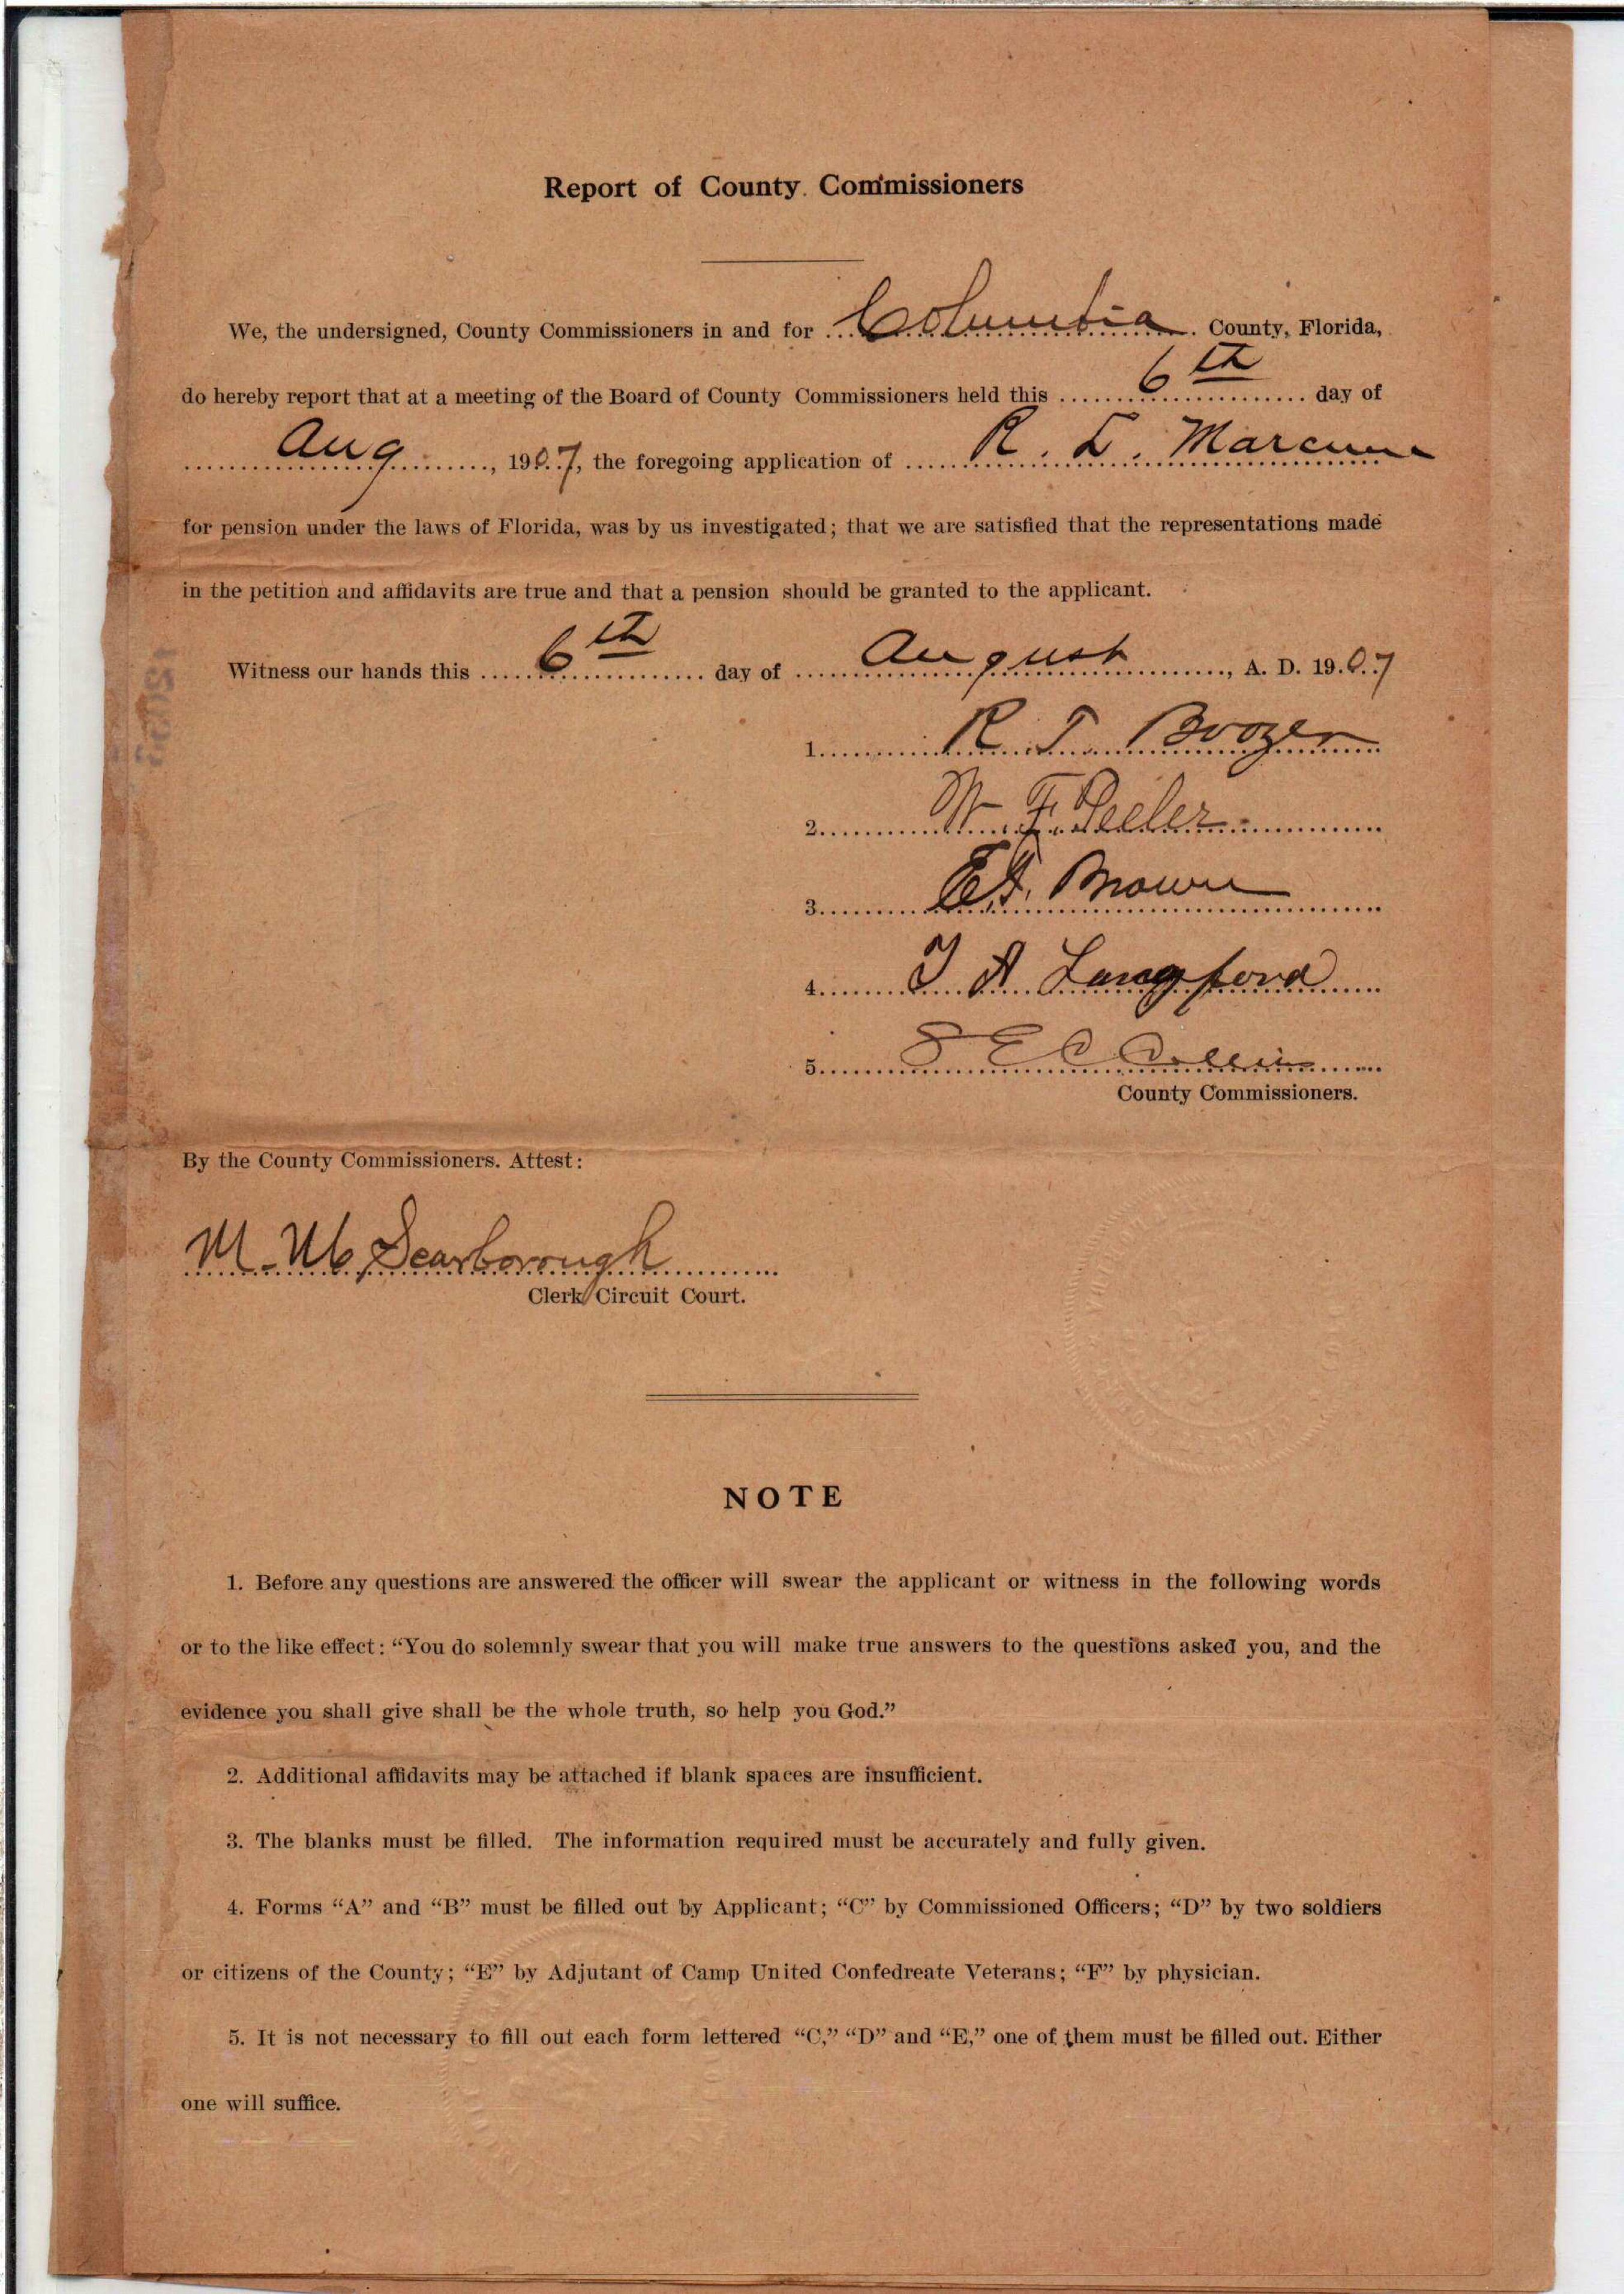 Report of County Commissioners
We, the undersigned, County Commissioners in and for Columbia County, Florida,
do hereby report that at a meeting of the Board of County Commissioners held this 6th day of
Aug, 1907, the foregoing application of R. L. Marcum
for pension under the laws of Florida, was by us investigated; that we are satisfied that the representations made
in the petition and affidavits are true and that a pension should be granted to the applicant.
Witness our hands this 6th day of August, A. D. 1907
1. R. T. Boozer
2. W. F. Peeler
3. Brown
4. Langford
5. Collins
County Commissioners.
By the County Commissioners. Attest:
M. M. Scarborough
Clerk Circuit Court.
NOTE
1. Before any questions are answered the officer will swear the applicant or witness in the following words
or to the like effect: “You do solemnly swear that you will make true answers to the questions asked you, and the
evidence you shall give shall be the whole truth, so help you God.”
2. Additional affidavits may be attached if blank spaces are insufficient.
3. The blanks must be filled. The information required must be accurately and fully given.
4. Forms “A” and “B” must be filled out by Applicant; “C” by Commissioned Officers; “D” by two soldiers
or citizens of the County; “E” by Adjutant of Camp United Confedreate Veterans; “F” by physician.
5. It is not necessary to fill out each form lettered “C,” “D” and “E,” one of them must be filled out. Either
one will suffice.